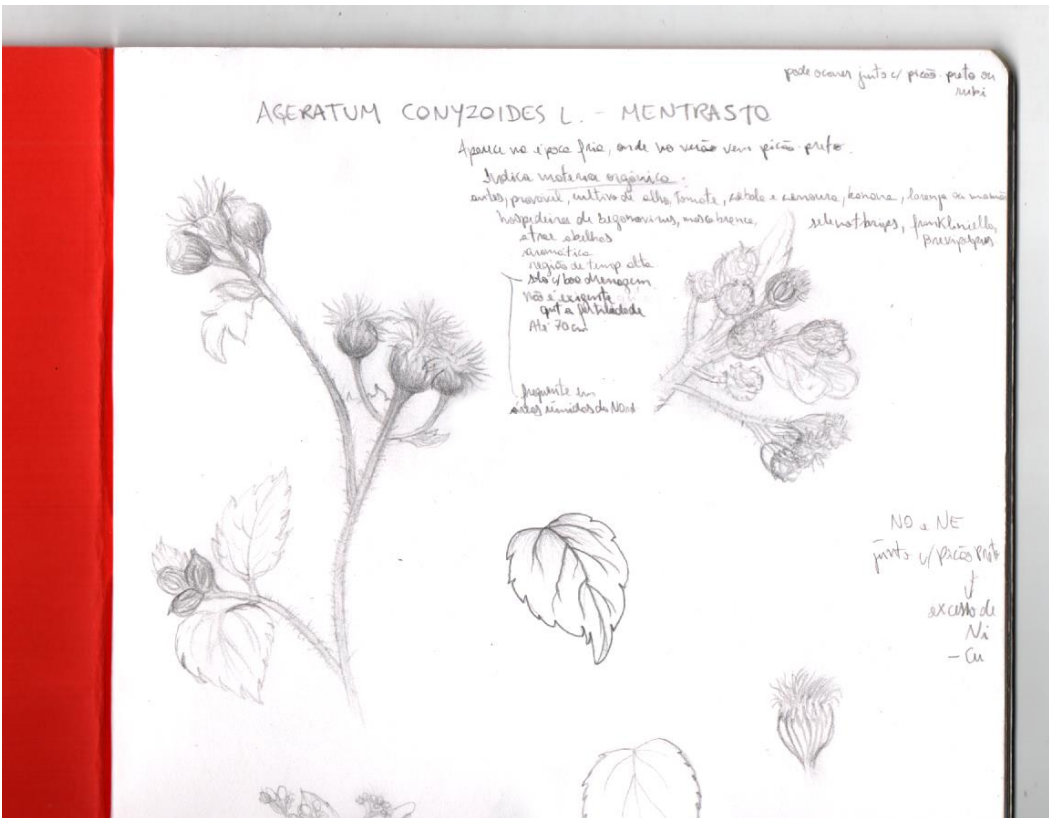 pode ocorrer junto c/ picão-preto ou
rubi
AGERATUM CONYZOIDES L. - MENTRASTO
Aparece na época fria, onde no verão vem picão-preto.
Indica matéria orgânica.
antes, provável, cultivo de alho, tomate, cebola e cenoura, banana, laranja ou mamão
hospedeira de begomovirus, mosca branca, selenothripes, frankliniella,
Brevipalpus
atrai abelhas
aromática
região de temp alta
solo c/ boa drenagem
não é exigente
qnt a fertilidade
Até 70 cm
frequente em
áreas úmidas do
NO e NE
junto c/ picão preto
excesso de
Ni
- Cu